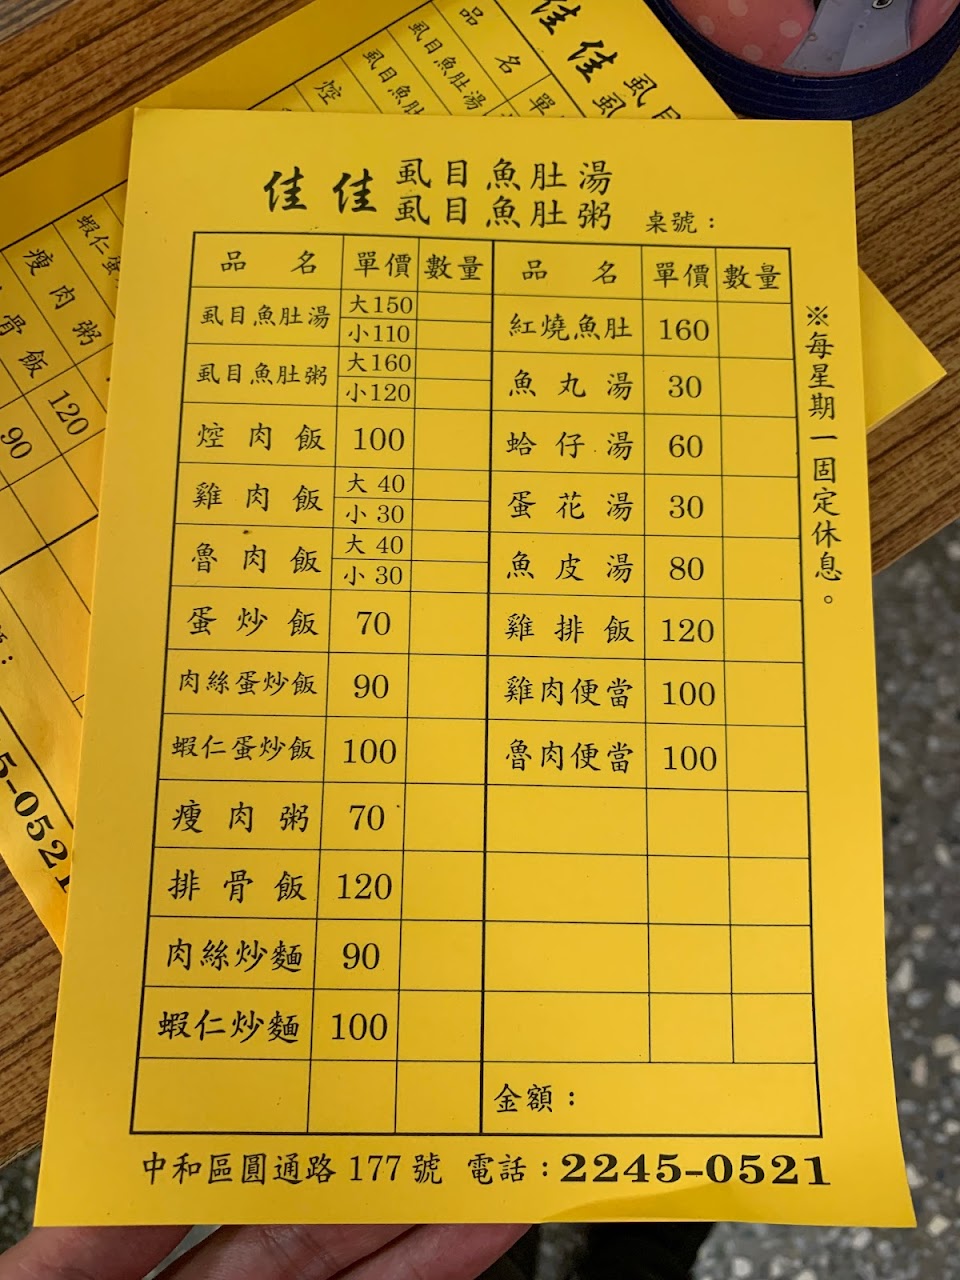 佳佳 虱目魚肚湯
虱目魚肚粥
桌號：
品名 單價 數量 品名 單價 數量
虱目魚肚湯 大150 紅燒魚肚 160
小110
虱目魚肚粥 大160 魚丸湯 30
小120
焢肉飯 100 蛤仔湯 60
雞肉飯 大 40 蛋花湯 30
小 30
魯肉飯 大 40 魚皮湯 80
小 30
蛋炒飯 70 雞排飯 120
肉絲蛋炒飯 90 雞肉便當 100
蝦仁蛋炒飯 100 魯肉便當 100
瘦肉粥 70
排骨飯 120
肉絲炒麵 90
蝦仁炒麵 100
金額：
※每星期一固定休息。
中和區圓通路 177 號 電話：2245-0521
佳佳
品名 單
虱目魚肚湯
虱目魚肚
蝦仁蛋
瘦肉粥
骨飯 120
90
5-0521